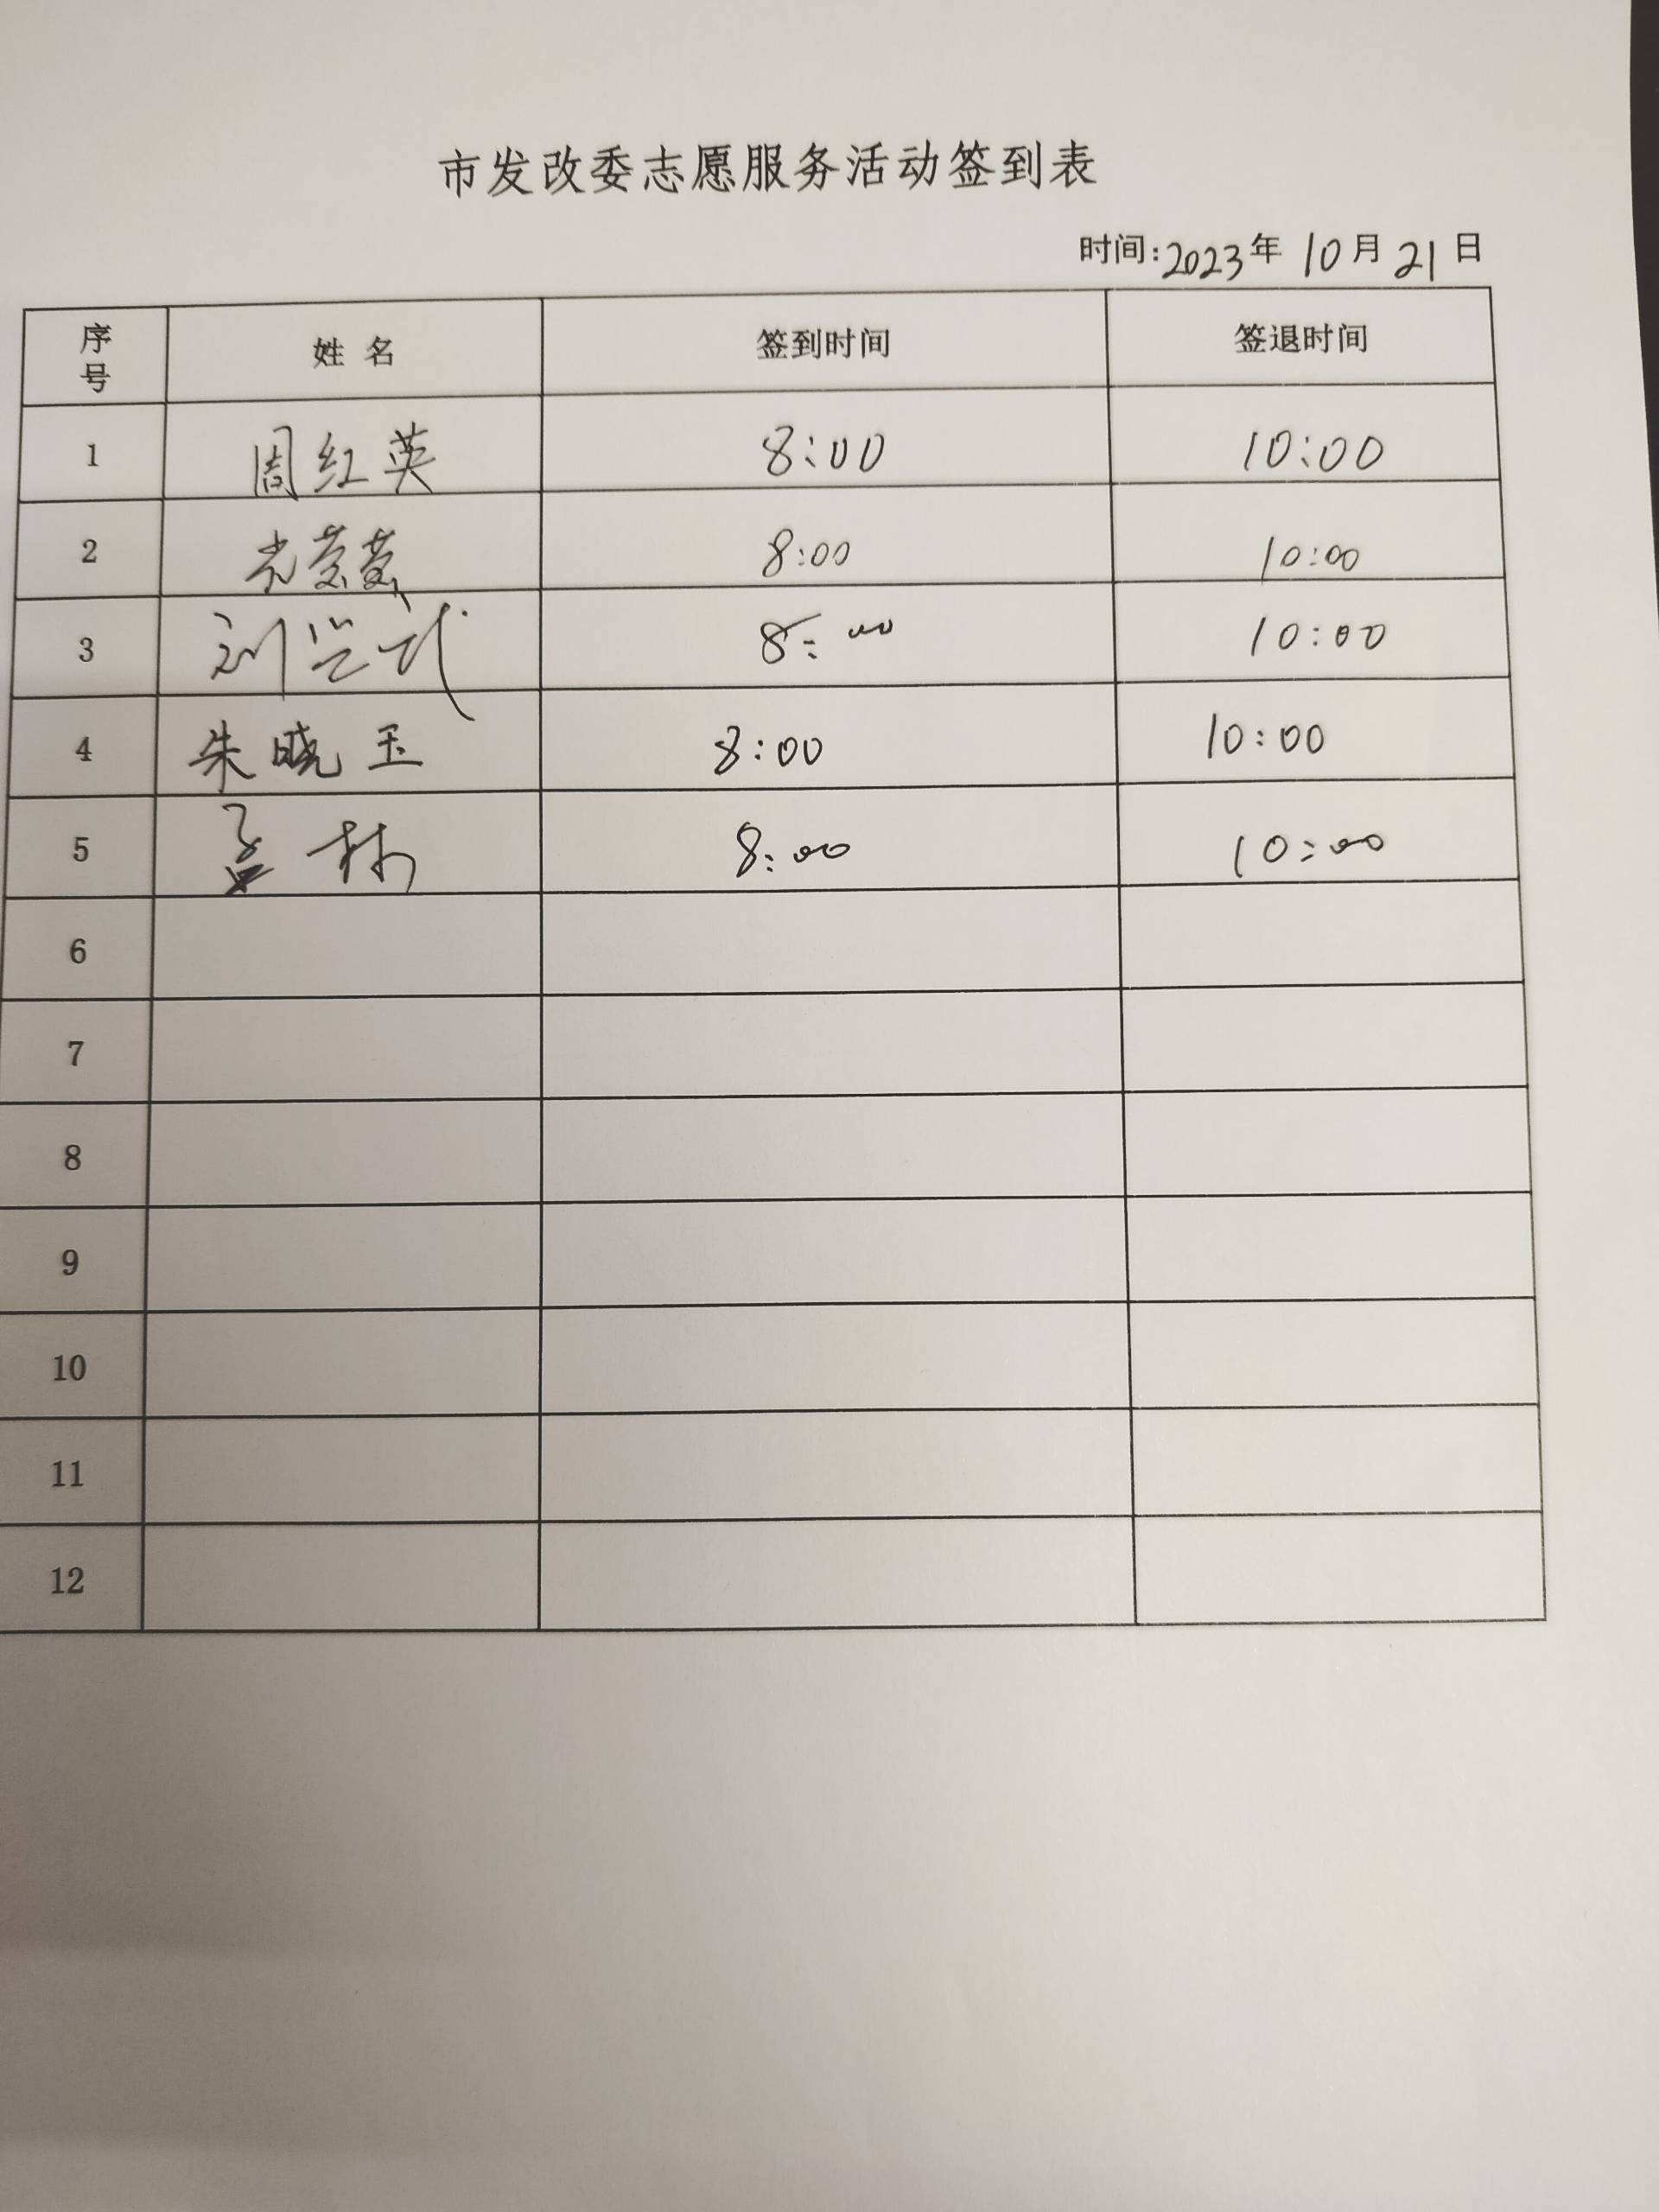 市发改委志愿服务活动签到表
时间:2023年 10月21日
序号 姓 名 签到时间 签退时间
1 周红英 8:00 10:00
2 8:00 10:00
3 刘兴武 8:00 10:00
4 朱晓玉 8:00 10:00
5 孟林 8:00 10:00
6
7
8
9
10
11
12